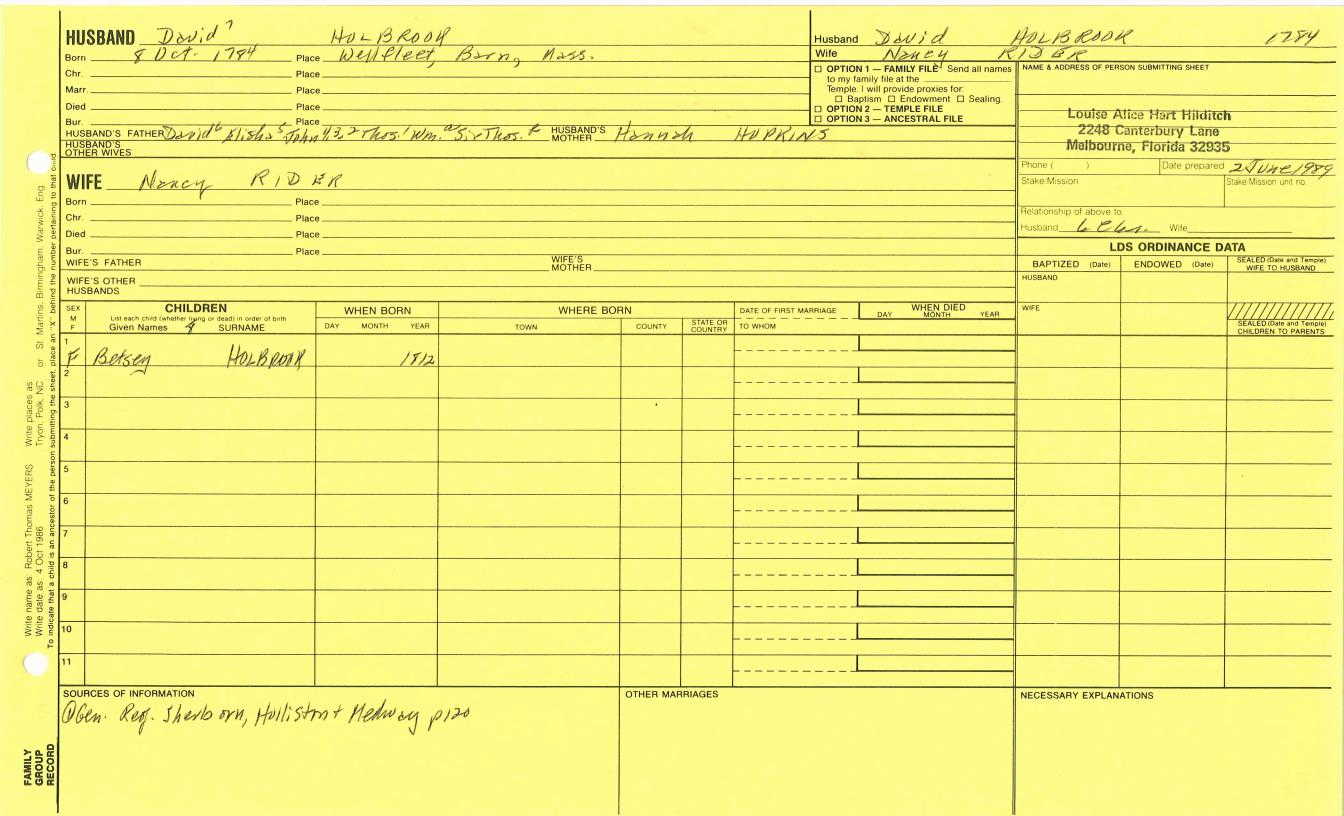 HUSBAND David⁷ HOLBROOK
Born 8 Oct. 1784 Place Wellfleet, Barn, Mass.
Chr. Place
Marr. Place
Died Place
Bur. Place
HUSBAND'S FATHER David⁶ Elisha⁵ John⁴,³,² Thos.¹ Wm. Sir Thos. HUSBAND'S MOTHER Hannah HOPKINS
HUSBAND'S OTHER WIVES
WIFE Nancy RIDER
Born Place
Chr. Place
Died Place
Bur. Place
WIFE'S FATHER WIFE'S MOTHER
WIFE'S OTHER HUSBANDS
Husband David HOLBROOK 1784
Wife Nancy RIDER
☐ OPTION 1 — FAMILY FILE Send all names
to my family file at the
Temple. I will provide proxies for:
☐ Baptism ☐ Endowment ☐ Sealing.
☐ OPTION 2 — TEMPLE FILE
☐ OPTION 3 — ANCESTRAL FILE
NAME & ADDRESS OF PERSON SUBMITTING SHEET
Louise Alice Hart Hilditch
2248 Canterbury Lane
Melbourne, Florida 32935
Phone ( ) Date prepared 2 June 1989
Stake/Mission Stake/Mission unit no.
Relationship of above to:
Husband 6 C Wife
LDS ORDINANCE DATA
BAPTIZED (Date) ENDOWED (Date) SEALED (Date and Temple) WIFE TO HUSBAND
HUSBAND
WIFE
SEALED (Date and Temple) CHILDREN TO PARENTS
SEX M F
CHILDREN
List each child (whether living or dead) in order of birth
Given Names SURNAME
WHEN BORN
DAY MONTH YEAR
WHERE BORN
TOWN COUNTY STATE OR COUNTRY
DATE OF FIRST MARRIAGE
TO WHOM
WHEN DIED
DAY MONTH YEAR
1
F Betsey HOLBROOK 1812
2
3
4
5
6
7
8
9
10
11
SOURCES OF INFORMATION
①Gen. Reg. Sherborn, Holliston + Medway p120
OTHER MARRIAGES
NECESSARY EXPLANATIONS
Write name as: Robert Thomas MEYERS Write places as: Tryon, Polk, NC or St. Martins, Birmingham, Warwick, Eng.
Write date as: 4 Oct 1986
To indicate that a child is an ancestor of the person submitting the sheet, place an "X" behind the number pertaining to that child.
FAMILY
GROUP
RECORD